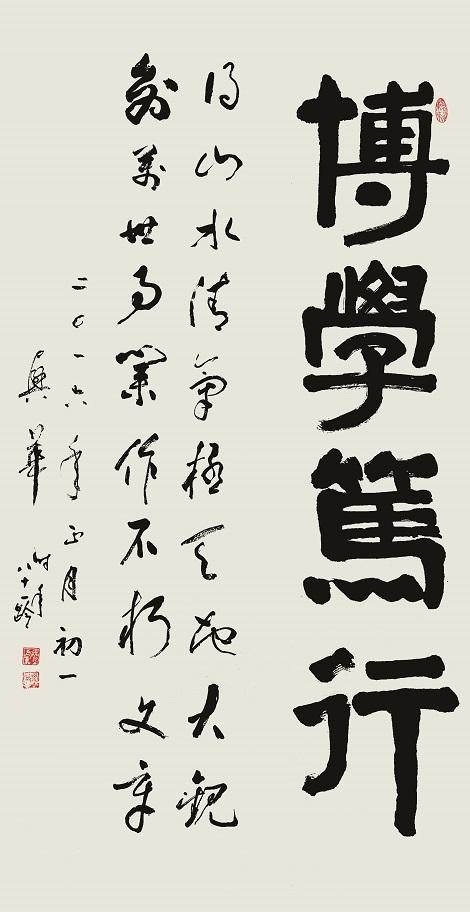 博學篤行
得山水清氣極天地大觀
萬世業作不朽文章
二〇一六年正月初一
華時年八十齡